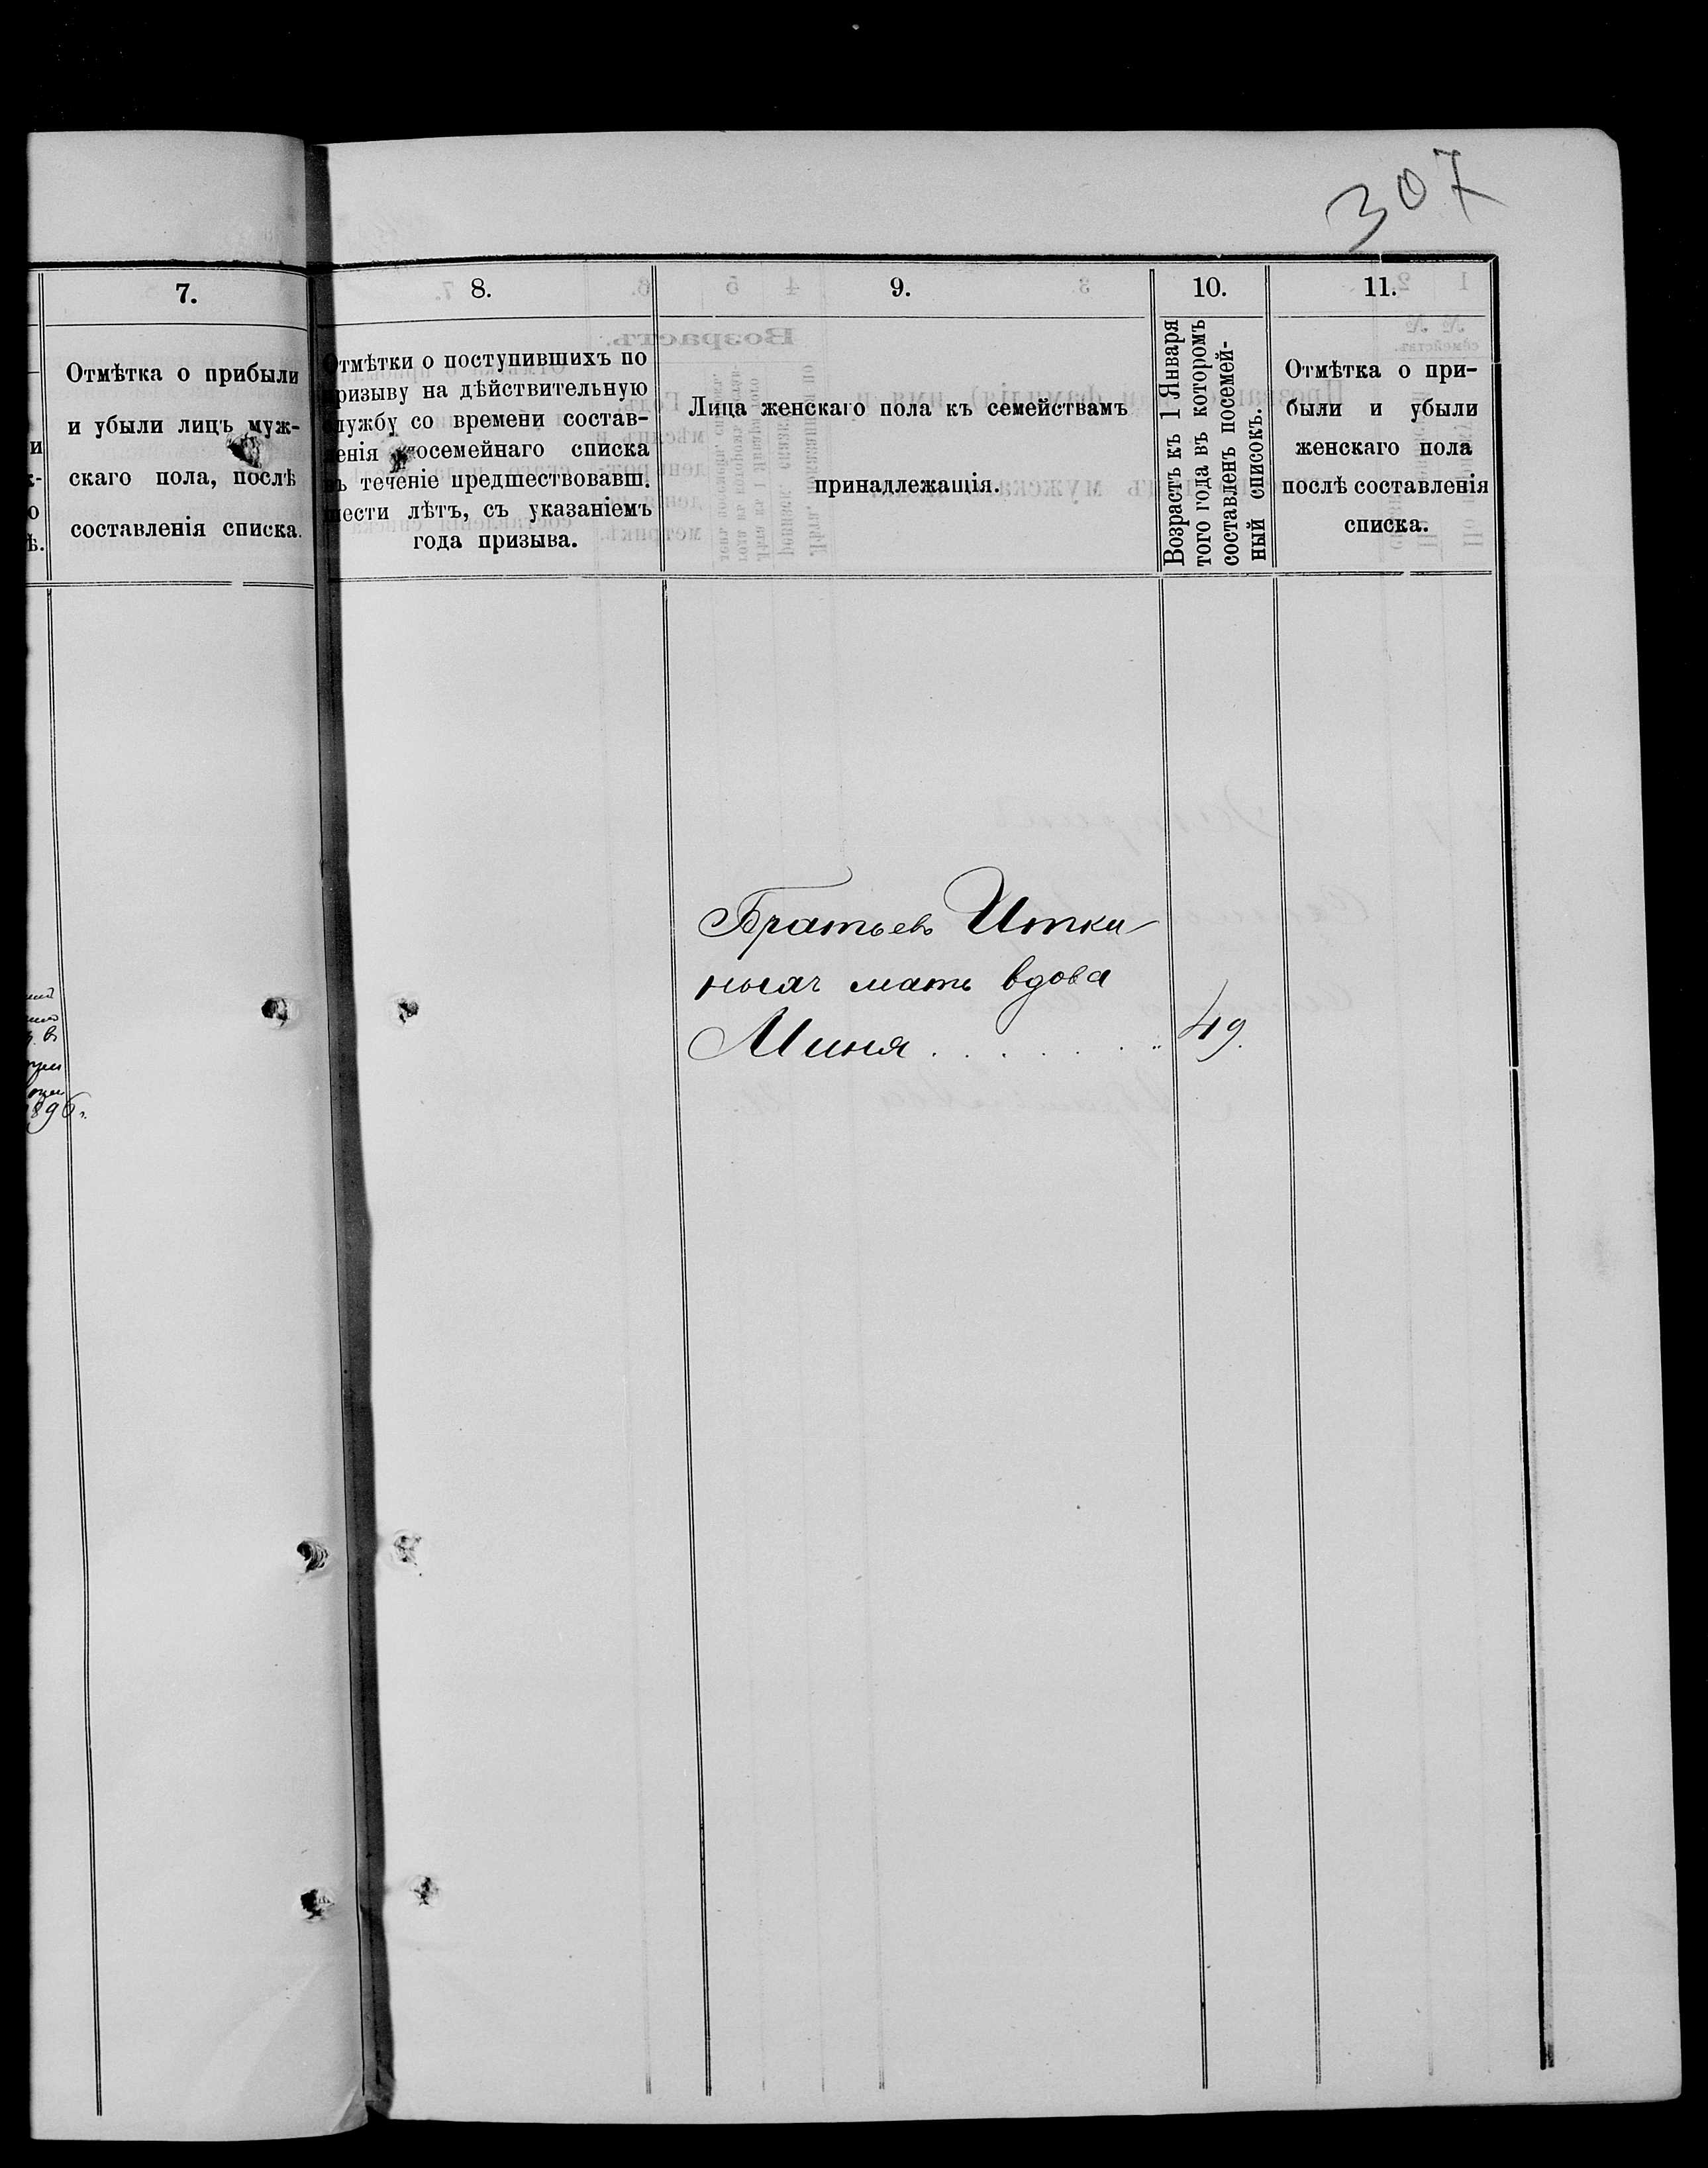 307
7.
Отмѣтка о прибыли
и убыли лицъ муж-
скаго пола, послѣ
составленія списка.
8.
Отмѣтки о поступившихъ по
призыву на дѣйствительную
службу со времени состав-
ленія посемейнаго списка
въ теченіе предшествовавш.
шести лѣтъ, съ указаніемъ
года призыва.
9.
Лица женскаго пола къ семействамъ
принадлежащія.
10.
Возрастъ къ 1 Января
того года въ которомъ
составленъ посемей-
ный списокъ.
11.
Отмѣтка о при-
были и убыли
женскаго пола
послѣ составленія
списка.
Братьевъ Итки-
ныхъ мать вдова
Миня . . . . . . . "
49.
1896 г.